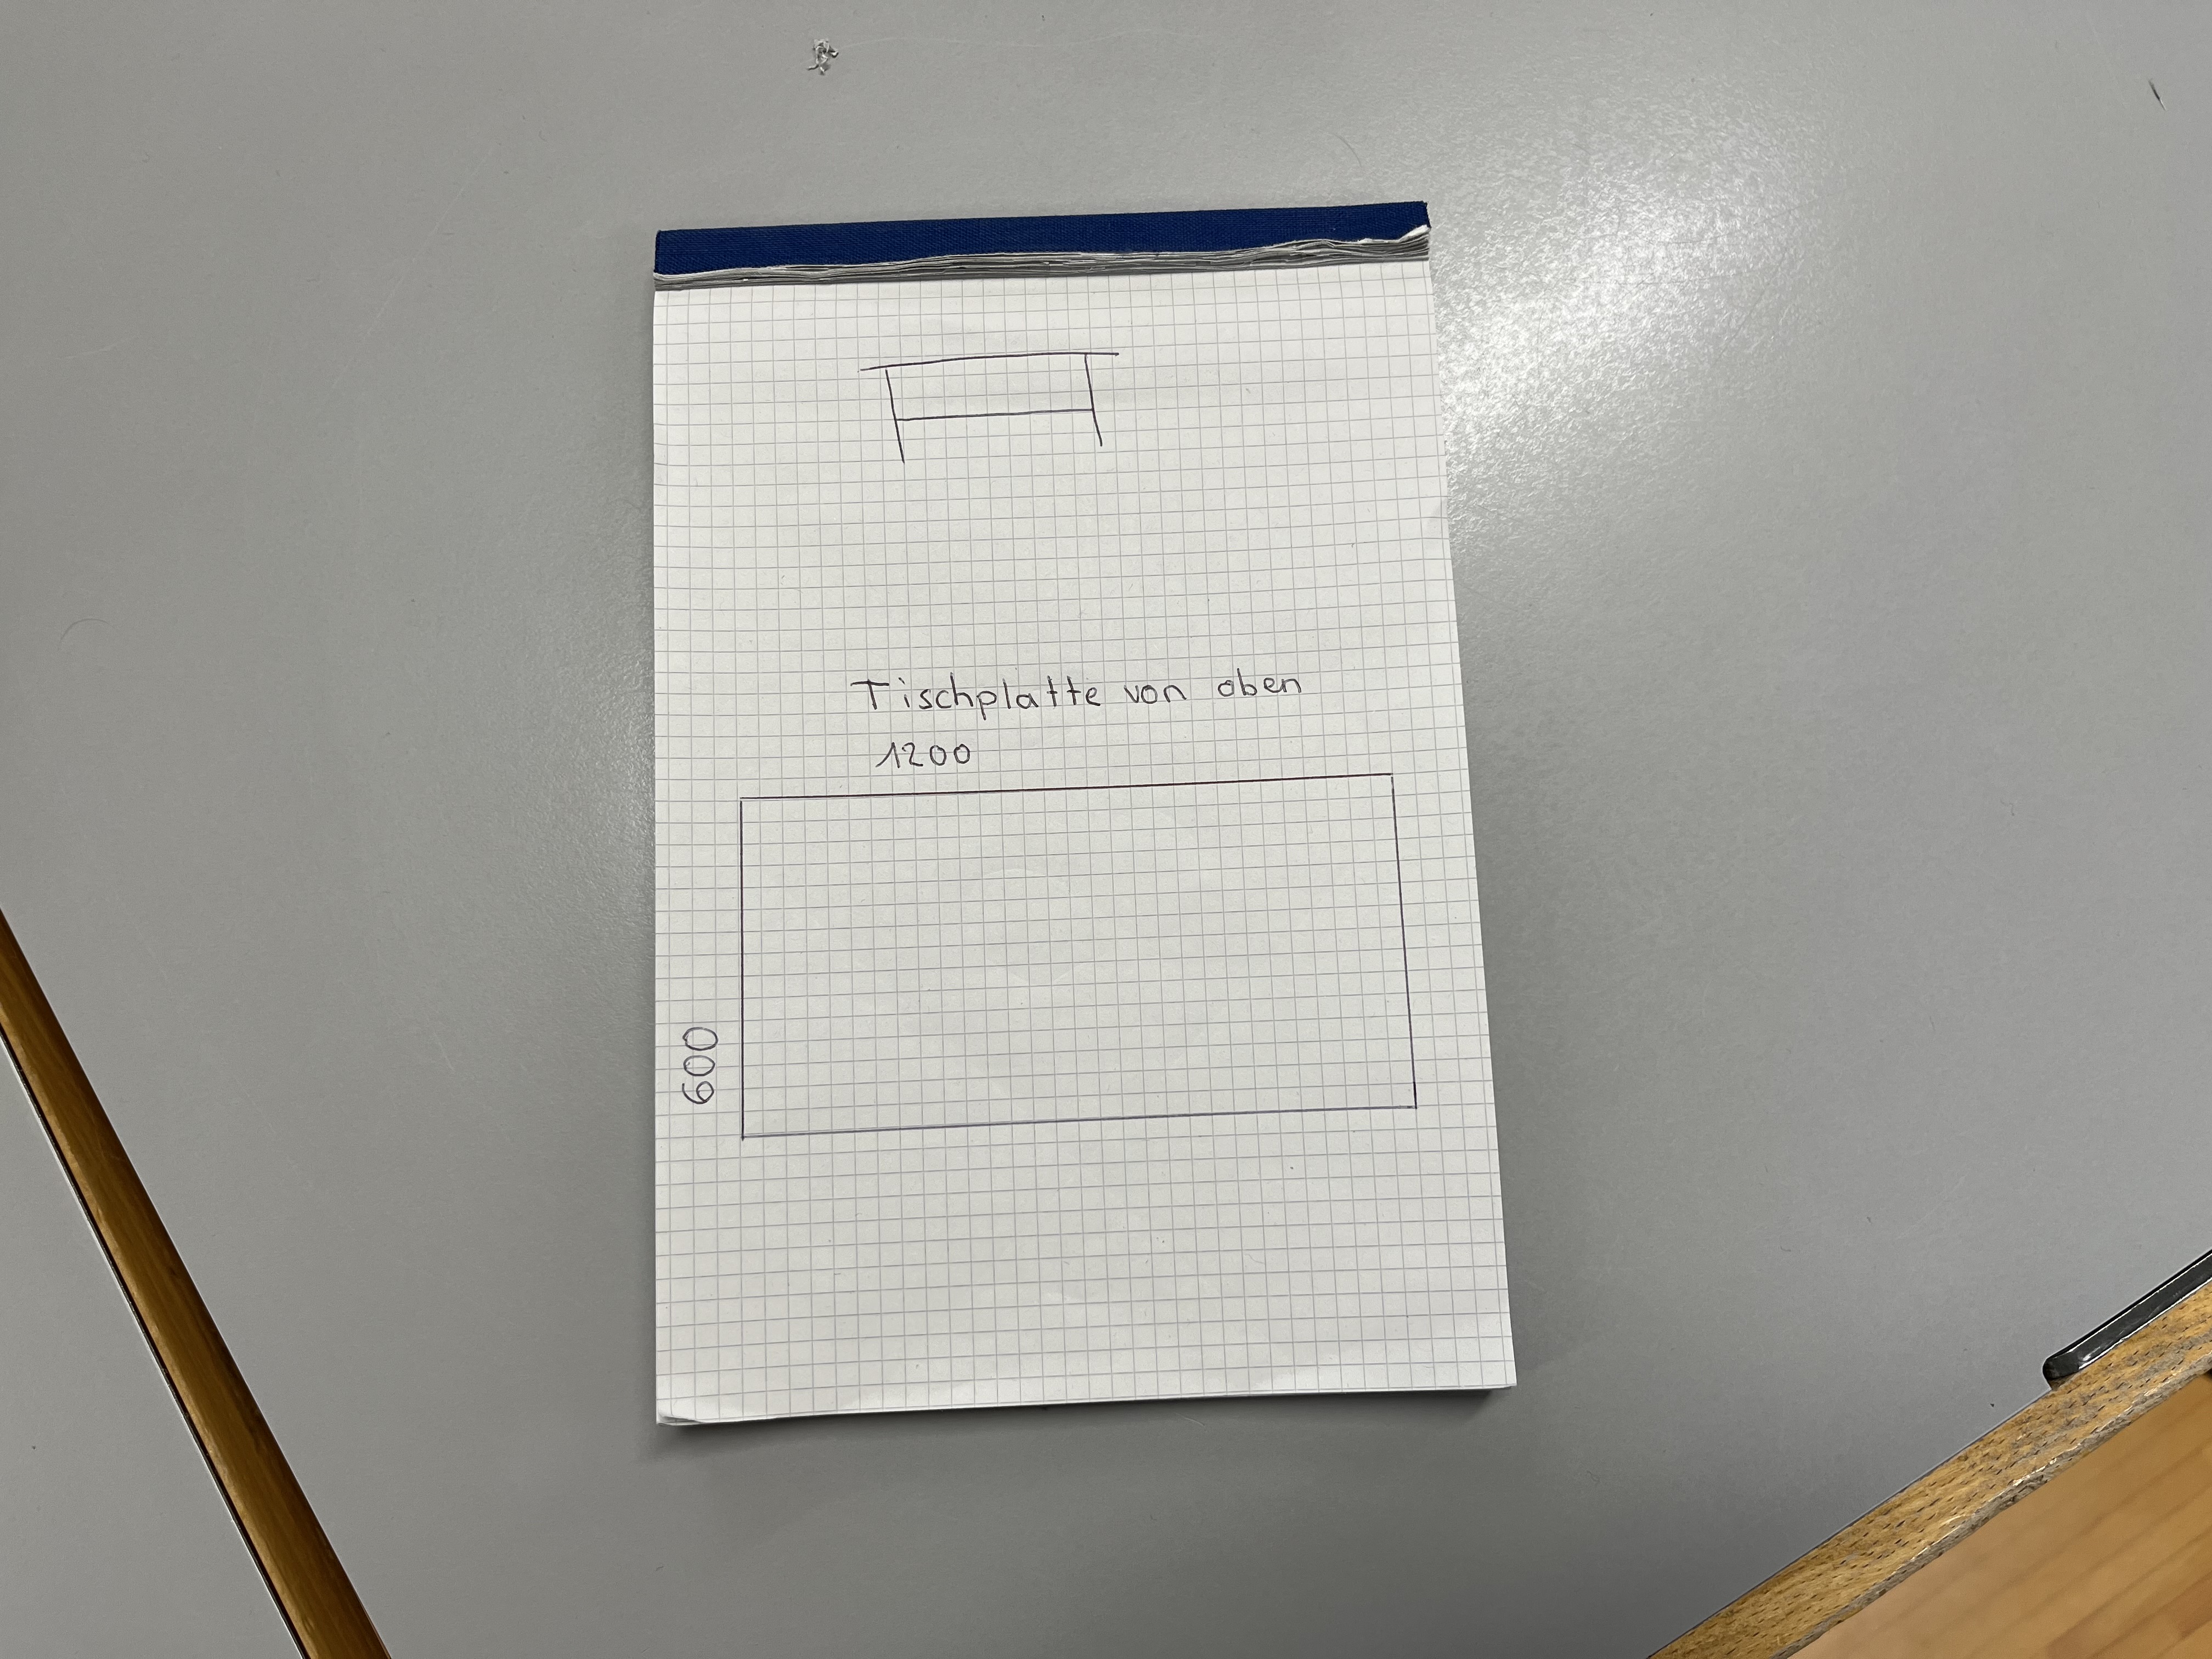 Tischplatte von oben
1200
600